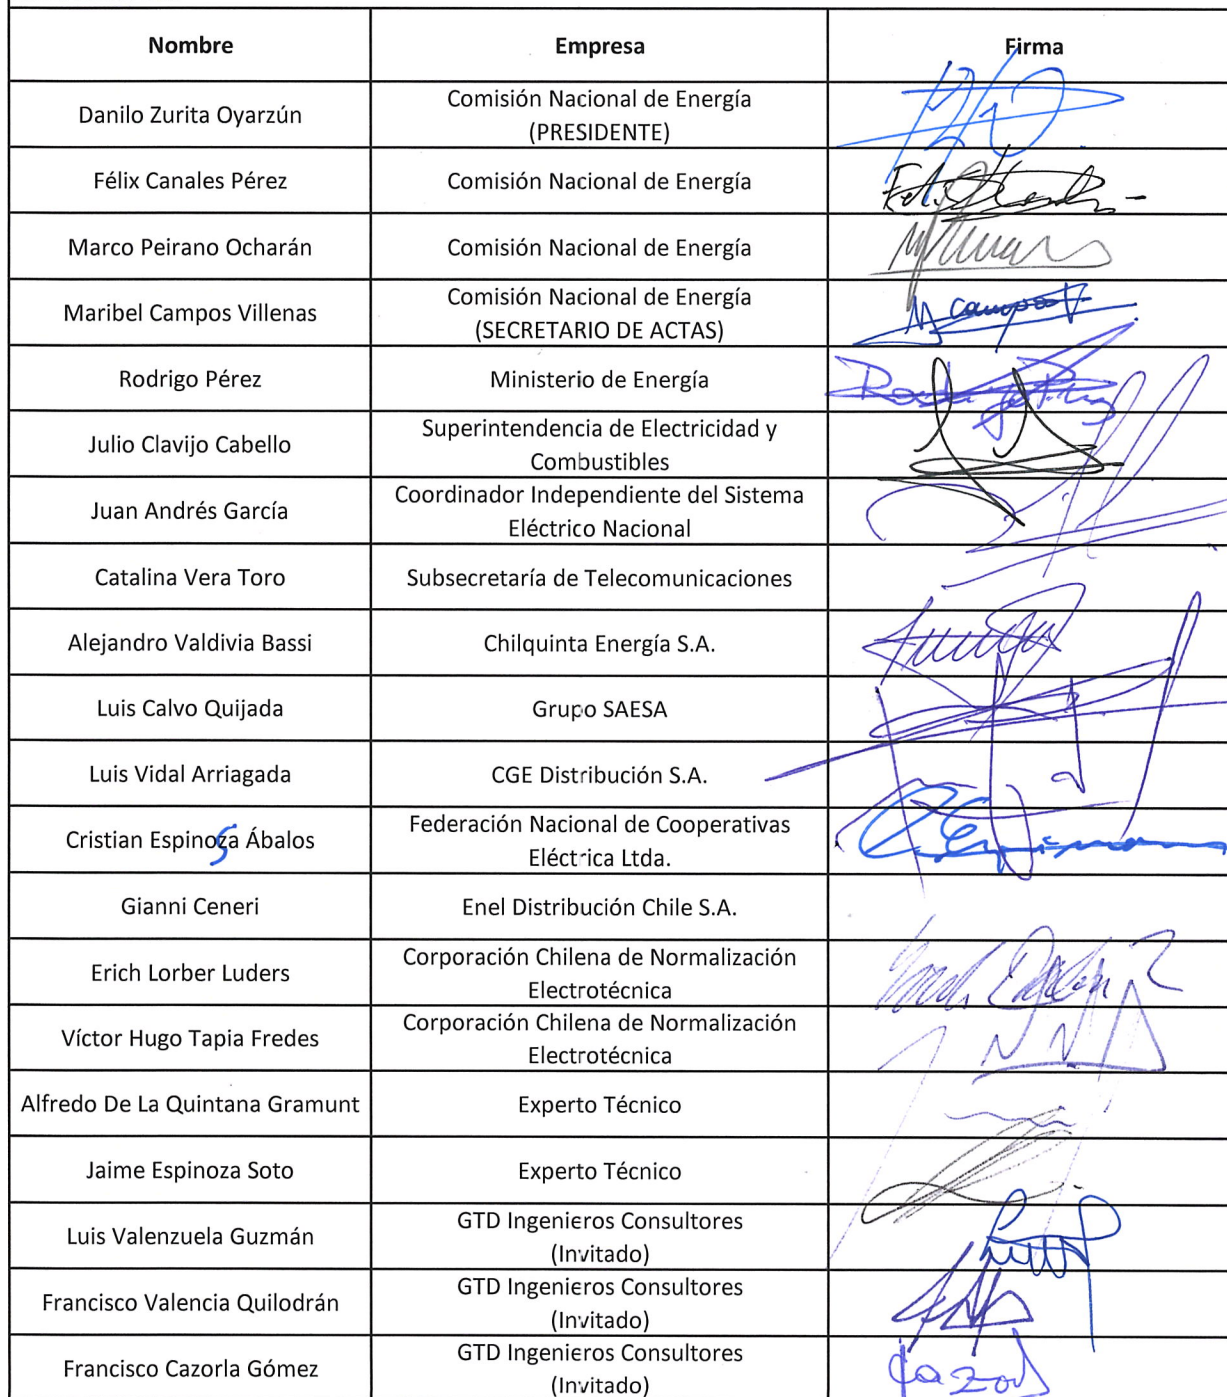 Nombre Empresa Firma
Danilo Zurita Oyarzún Comisión Nacional de Energía
(PRESIDENTE)
Félix Canales Pérez Comisión Nacional de Energía
Marco Peirano Ocharán Comisión Nacional de Energía
Maribel Campos Villenas Comisión Nacional de Energía
(SECRETARIO DE ACTAS) M Campos V
Rodrigo Pérez Ministerio de Energía
Julio Clavijo Cabello Superintendencia de Electricidad y
Combustibles
Juan Andrés García Coordinador Independiente del Sistema
Eléctrico Nacional
Catalina Vera Toro Subsecretaría de Telecomunicaciones
Alejandro Valdivia Bassi Chilquinta Energía S.A.
Luis Calvo Quijada Grupo SAESA
Luis Vidal Arriagada CGE Distribución S.A.
Cristian Espinoza Ábalos Federación Nacional de Cooperativas
Eléctrica Ltda.
Gianni Ceneri Enel Distribución Chile S.A.
Erich Lorber Luders Corporación Chilena de Normalización
Electrotécnica
Víctor Hugo Tapia Fredes Corporación Chilena de Normalización
Electrotécnica
Alfredo De La Quintana Gramunt Experto Técnico
Jaime Espinoza Soto Experto Técnico
Luis Valenzuela Guzmán GTD Ingenieros Consultores
(Invitado)
Francisco Valencia Quilodrán GTD Ingenieros Consultores
(Invitado)
Francisco Cazorla Gómez GTD Ingenieros Consultores
(Invitado)